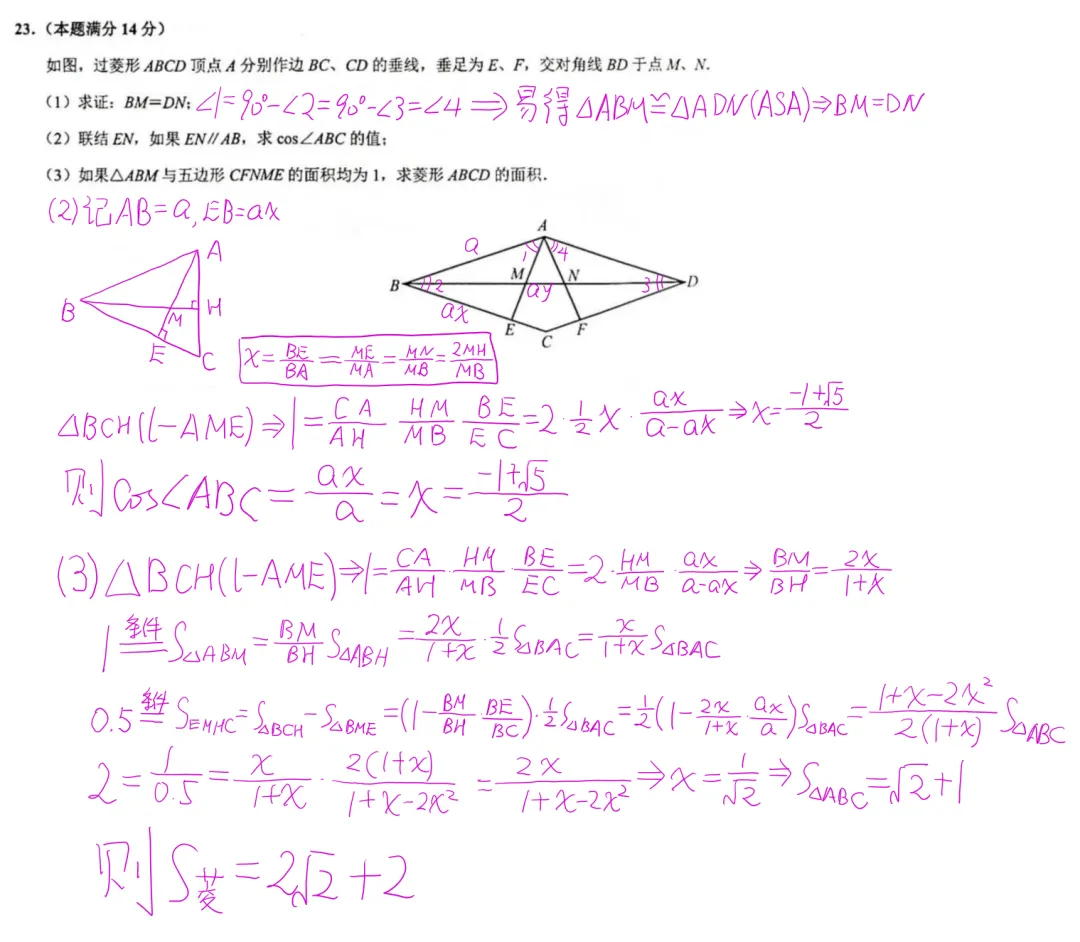 23.（本题满分 14 分）
如图，过菱形 ABCD 顶点 A 分别作边 BC、CD 的垂线，垂足为 E、F，交对角线 BD 于点 M、N.
（1）求证：BM=DN; ∠1=90°-∠2=90°-∠3=∠4 ⇒ 易得△ABM≌△ADN(ASA)⇒BM=DN
（2）联结 EN，如果 EN∥AB，求 cos∠ABC 的值；
（3）如果△ABM 与五边形 CFNME 的面积均为 1，求菱形 ABCD 的面积.
(2)记AB=a, EB=ax
A
B
M
H
E
C
A
a
1
4
B
2
M
ay
N
3
D
ax
E
C
F
x=BE/BA=ME/MA=MN/MB=2MH/MB
△BCH(l-AME)⇒1=CA/AH HM/MB BE/EC=2·1/2 x·ax/(a-ax)⇒x=(-1+√5)/2
则cos∠ABC=ax/a=x=(-1+√5)/2
(3)△BCH(l-AME)⇒1=CA/AH·HM/MB·BE/EC=2·HM/MB·ax/(a-ax)⇒BM/BH=2x/(1+x)
1 条件= S△ABM=BM/BH S△ABH=2x/(1+x)·1/2 S△BAC=x/(1+x) S△BAC
0.5 条件= SEMHC=S△BCH-S△BME=(1-BM/BH·BE/BC)·1/2 S△BAC=1/2(1-2x/(1+x)·ax/a)S△BAC=(1+x-2x²)/(2(1+x)) S△ABC
2=1/0.5=x/(1+x)·2(1+x)/(1+x-2x²)=2x/(1+x-2x²)⇒x=1/√2⇒S△ABC=√2+1
则S菱=2√2+2